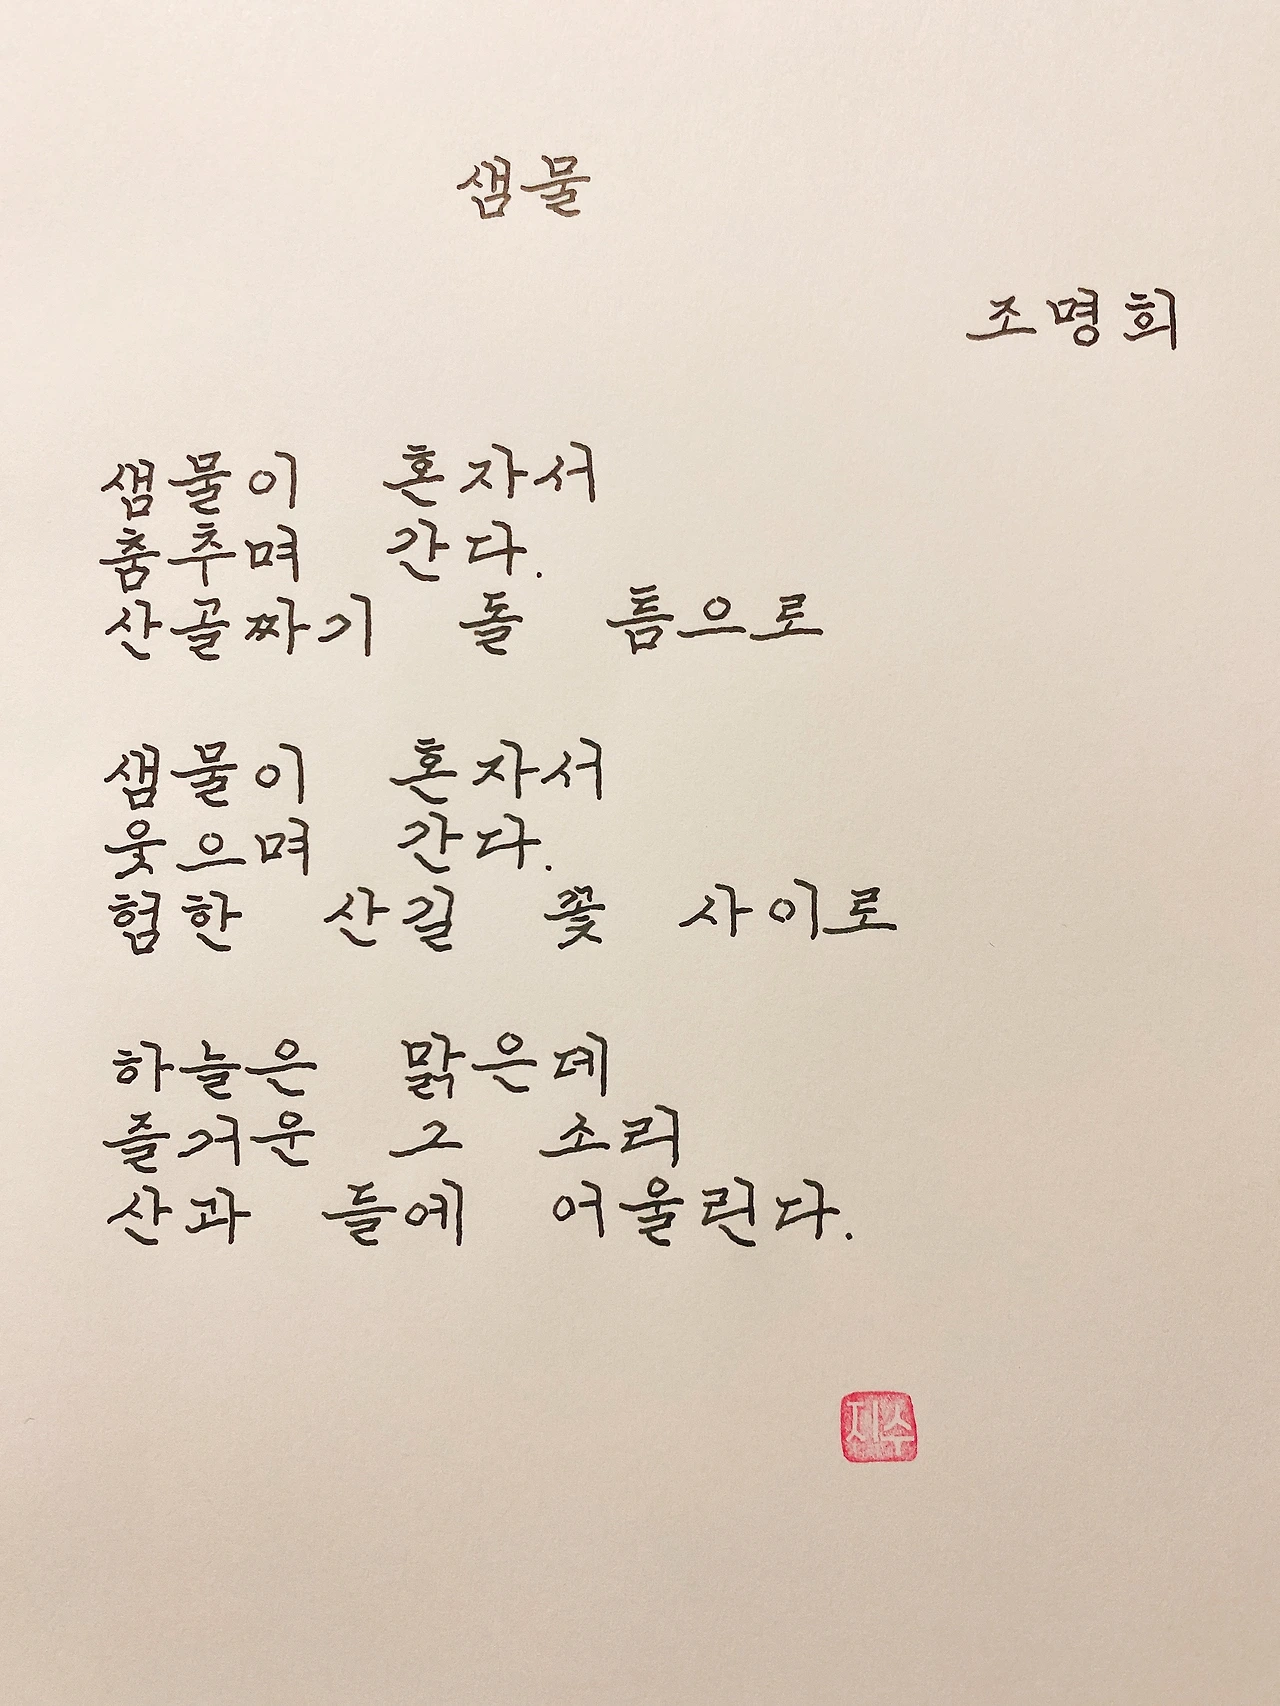 샘물
조명희
샘물이 혼자서
춤추며 간다.
산골짜기 돌 틈으로
샘물이 혼자서
웃으며 간다.
험한 산길 꽃 사이로
하늘은 맑은데
즐거운 그 소리
산과 들에 어울린다.
제수